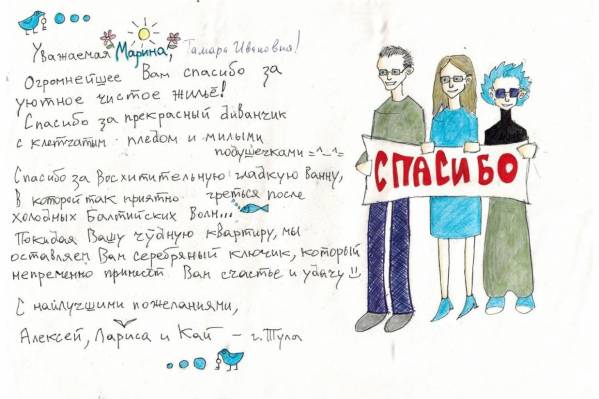 Уважаемая Марина, Тамара Ивановна!
Огромнейшее Вам спасибо за
уютное чистое жильё!
Спасибо за прекрасный диванчик
с клетчатым пледом и милыми
подушечками =^_^=
Спасибо за восхитительную гладкую ванну,
в которой так приятно греться после
холодных Балтийских волн...
Покидая Вашу чудную квартиру, мы
оставляем Вам серебряный ключик, который
непременно принесёт Вам счастье и удачу
С наилучшими пожеланиями,
Алексей, Лариса и Кай – г. Тула
СПАСИБО